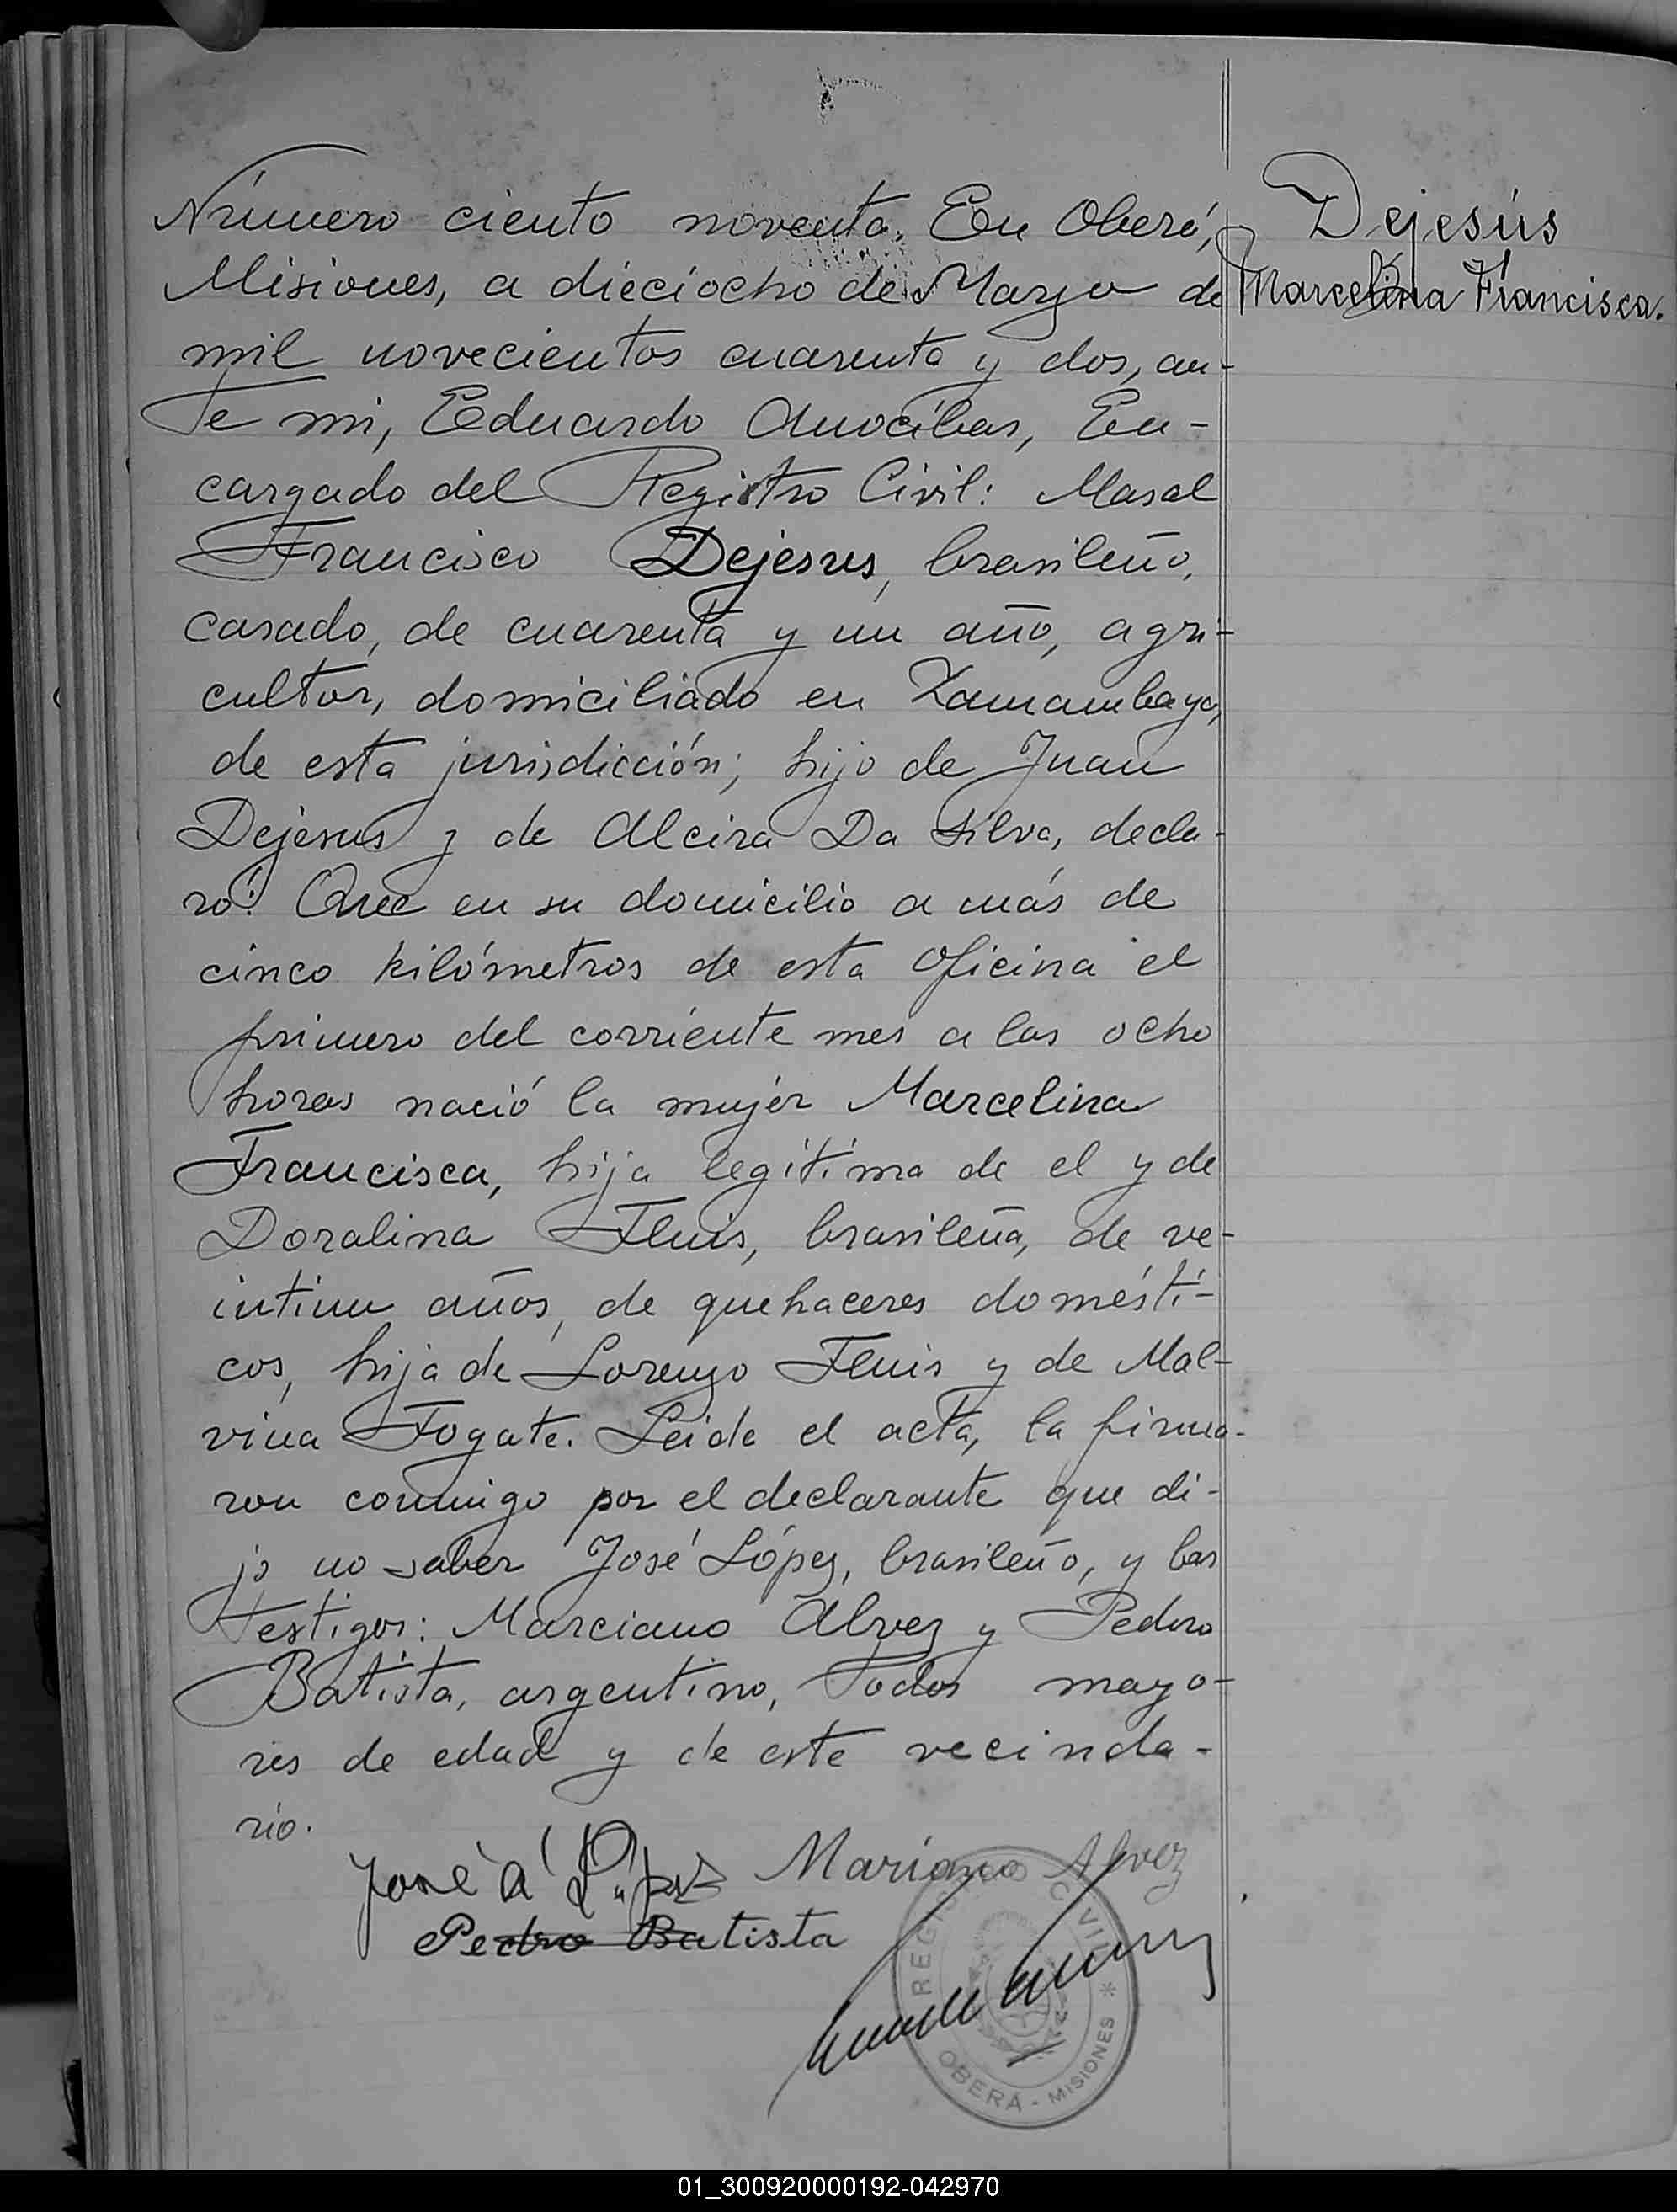 Número ciento noventa. En Oberá,
Misiones, a dieciocho de Marzo de
mil novecientos cuarenta y dos, an-
te mi, Eduardo Anocíbar, En-
cargado del Registro Civil: Masal
Francisco Dejesus, brasileño,
casado, de cuarenta y un año, agri-
cultor, domiciliado en Zamambaya,
de esta jurisdicción; hijo de Juan
Dejesus y de Alcira Da Silva, decla-
ró: Que en su domicilio a más de
cinco kilómetros de esta Oficina el
primero del corriente mes a las ocho
horas nació la mujer Marcelina
Francisca, hija legítima de el y de
Doralina Fluis, brasileña, de ve-
intiun años, de quehaceres domésti-
cos, hija de Lorenzo Fluis y de Mal-
vina Fogate. Leida el acta, la firma-
ron conmigo por el declarante que di-
jo no saber José López, brasileño, y los
testigos: Marciano Alvez y Pedro
Batista, argentino, todos mayo-
res de edad y de este vecinda-
rio.
Dejesús
Marcelina Francisca.
José A López Mariano Alvez
Pedro Batista
REGISTRO CIVIL
OBERÁ - MISIONES *
01_300920000192-042970